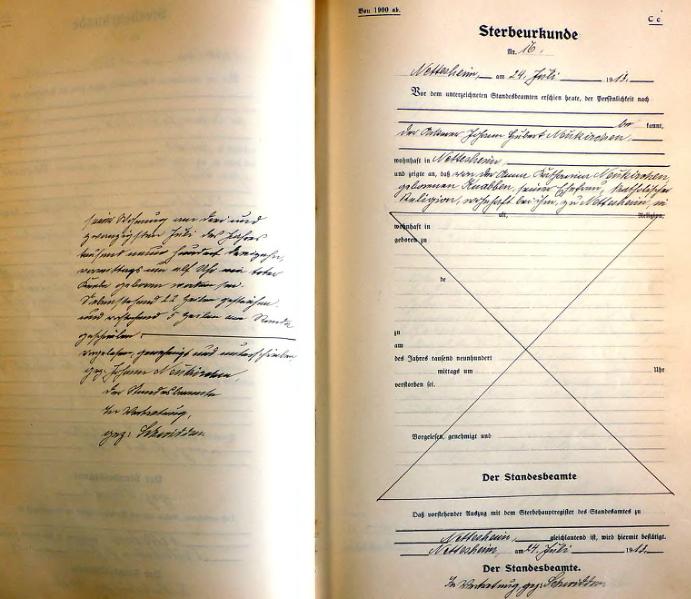 seiner Wohnung am drei und
zwanzigsten Juli des Jahres
tausend neun hundert dreizehn,
vormittags um elf Uhr ein toter
Knabe geboren worden sei.
Nebenstehend 22 Zeilen gestrichen
und vorstehend 5 Zeilen am Rande
geschrieben.
Vorgelesen, genehmigt und unterschrieben
gez: Johann Neukirchen,
Der Standesbeamte
In Vertretung,
gez:
Von 1900 ab.
C c
Sterbeurkunde
Nr. 16.
Nettersheim, am 24. Juli 1913.
Vor dem unterzeichneten Standesbeamten erschien heute, der Persönlichkeit nach
be kannt,
der Ackerer Johann Hubert Neukirchen,
wohnhaft in Nettersheim,
und zeigte an, daß von der Anna Katharina Neukirchen,
geborenen seiner Ehefrau, katholischer
Religion, wohnhaft bei ihm, zu Nettersheim, in
alt, Religion,
wohnhaft in
geboren zu
de
zu
am
des Jahres tausend neunhundert
mittags um Uhr
verstorben sei.
Vorgelesen, genehmigt und
Der Standesbeamte
Daß vorstehender Auszug mit dem Sterbehauptregister des Standesamtes zu
Nettersheim, gleichlautend ist, wird hiermit bestätigt.
Nettersheim, am 24. Juli 1913.
Der Standesbeamte.
In Vertretung, gez: